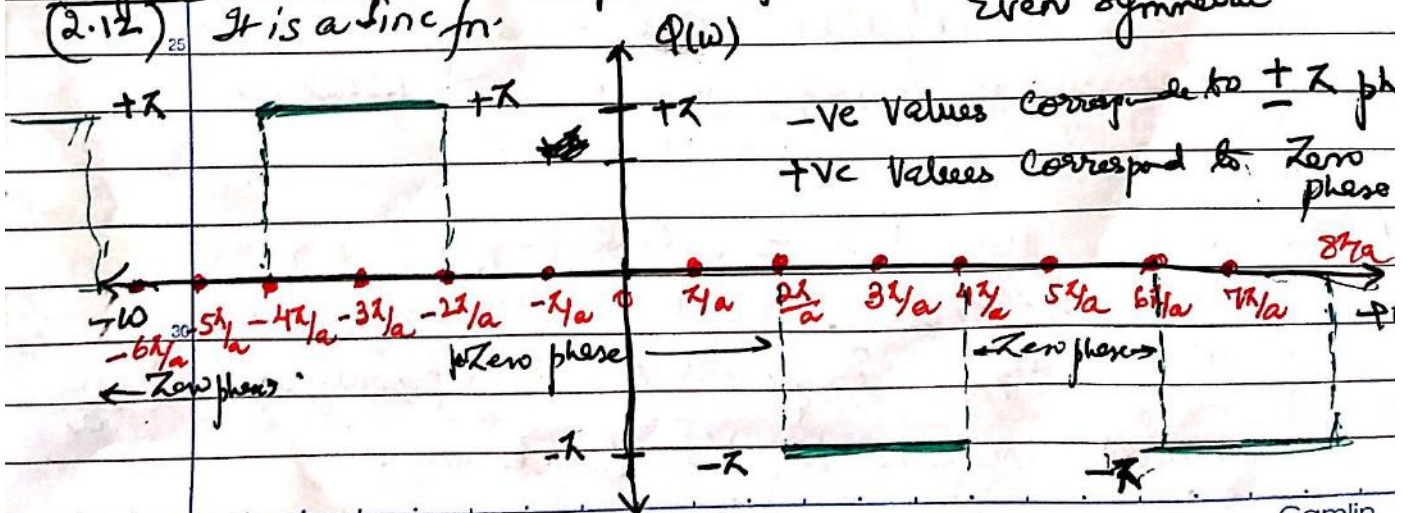 (2.12) It is a Sinc fn. Even Symmetric
25
Φ(ω)
+π +π +π -ve Values Correspond to ± π ph
+ve Values Correspond to Zero
phase
8π/a
-ω -6π/a -5π/a -4π/a -3π/a -2π/a -π/a 0 π/a 2π/a 3π/a 4π/a 5π/a 6π/a 7π/a
30
Zero phase Zero phase Zero phase
-π -π -π
Camlin